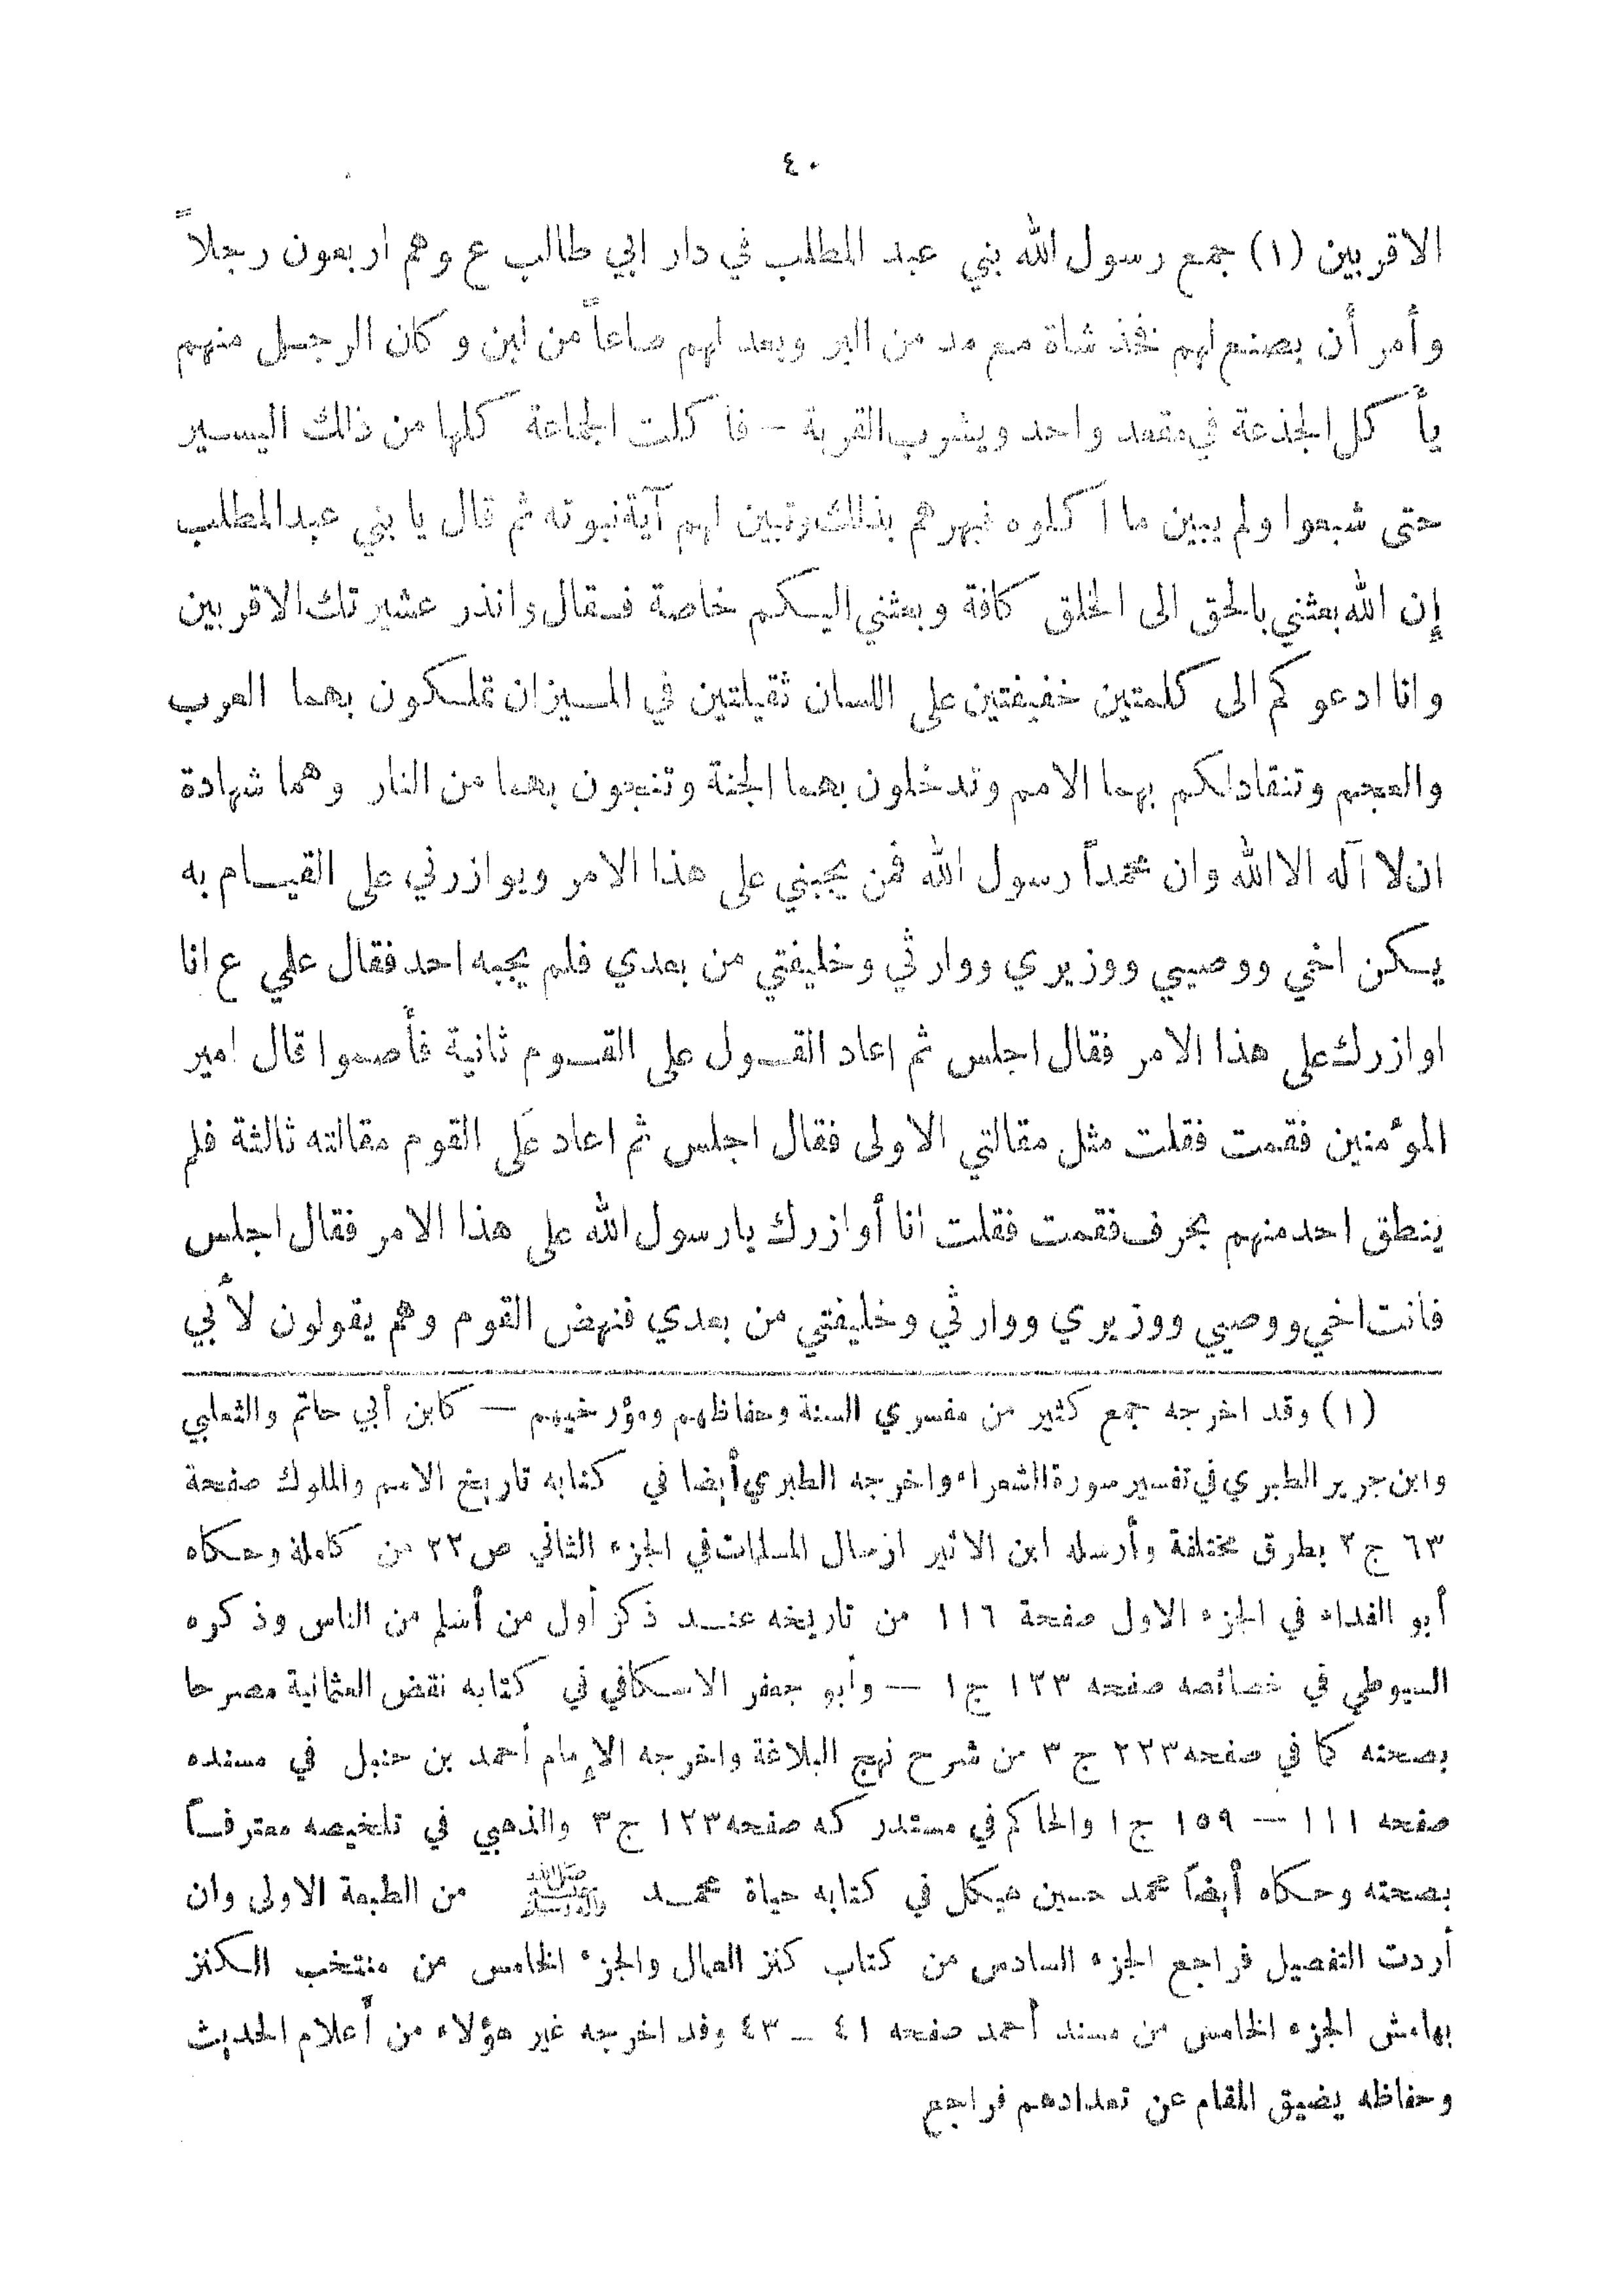 ٤٠
الاقربين (١) جمع رسول الله بني عبد المطلب في دار ابي طالب ع وهم اربعون رجلاً
وأمر أن يصنع لهم فخذ شاة مع مد من البر ويعد لهم صاعاً من لبن وكان الرجل منهم
يأكل الجذعة في مقعد واحد ويشرب القربة – فاكلت الجماعة كلها من ذلك اليسير
حتى شبعوا ولم يبين ما اكلوه فبهرهم بذلك وتبين لهم آية نبوته ثم قال يا بني عبد المطلب
إن الله بعثني بالحق الى الخلق كافة وبعثني اليكم خاصة فقال وانذر عشيرتك الاقربين
وانا ادعوكم الى كلمتين خفيفتين على اللسان ثقيلتين في الميزان تملكون بهما العرب
والعجم وتنقاد لكم بهما الامم وتدخلون بهما الجنة وتنجون بهما من النار وهما شهادة
ان لا آله الا الله وان محمداً رسول الله فمن يجبني على هذا الامر ويوازرني على القيام به
يكن اخي ووصيي ووزيري ووارثي وخليفتي من بعدي فلم يجبه احد فقال علي ع انا
اوازرك على هذا الامر فقال اجلس ثم اعاد القول على القوم ثانية فأصموا قال امير
المؤمنين فقمت فقلت مثل مقالتي الاولى فقال اجلس ثم اعاد على القوم مقالته ثالثة فلم
ينطق احد منهم بحرف فقمت فقلت انا أوازرك يارسول الله على هذا الامر فقال اجلس
فانت اخي ووصيي ووزيري ووارثي وخليفتي من بعدي فنهض القوم وهم يقولون لأبي
(١) وقد اخرجه جمع كثير من مفسري السنة وحفاظهم ومؤرخيهم – كابن أبي حاتم والثعلبي
وابن جرير الطبري في تفسير سورة الشعراء واخرجه الطبري أيضا في كتابه تاريخ الامم والملوك صفحة
٦٣ ج ٢ بطرق مختلفة وأرسله ابن الاثير ارسال المسلمات في الجزء الثاني ص ٢٢ من كامله وحكاه
أبو الفداء في الجزء الاول صفحة ١١٦ من تاريخه عند ذكر أول من أسلم من الناس وذكره
السيوطي في خصائصه صفحه ١٢٣ ج ١ – وأبو جعفر الاسكافي في كتابه نقض العثمانية مصرحا
بصحته كما في صفحه ٢٢٣ ج ٣ من شرح نهج البلاغة واخرجه الإمام أحمد بن حنبل في مسنده
صفحه ١١١ – ١٥٩ ج ١ والحاكم في مستدركه صفحه ١٢٣ ج ٣ والذهبي في تلخيصه معترفاً
بصحته وحكاه أيضاً محمد حسين هيكل في كتابه حياة محمد من الطبعة الاولى وان
أردت التفصيل فراجع الجزء السادس من كتاب كنز العمال والجزء الخامس من منتخب الكنز
بهامش الجزء الخامس من مسند أحمد صفحه ٤١ – ٤٣ وقد اخرجه غير هؤلاء من أعلام الحديث
وحفاظه يضيق المقام عن تعدادهم فراجع